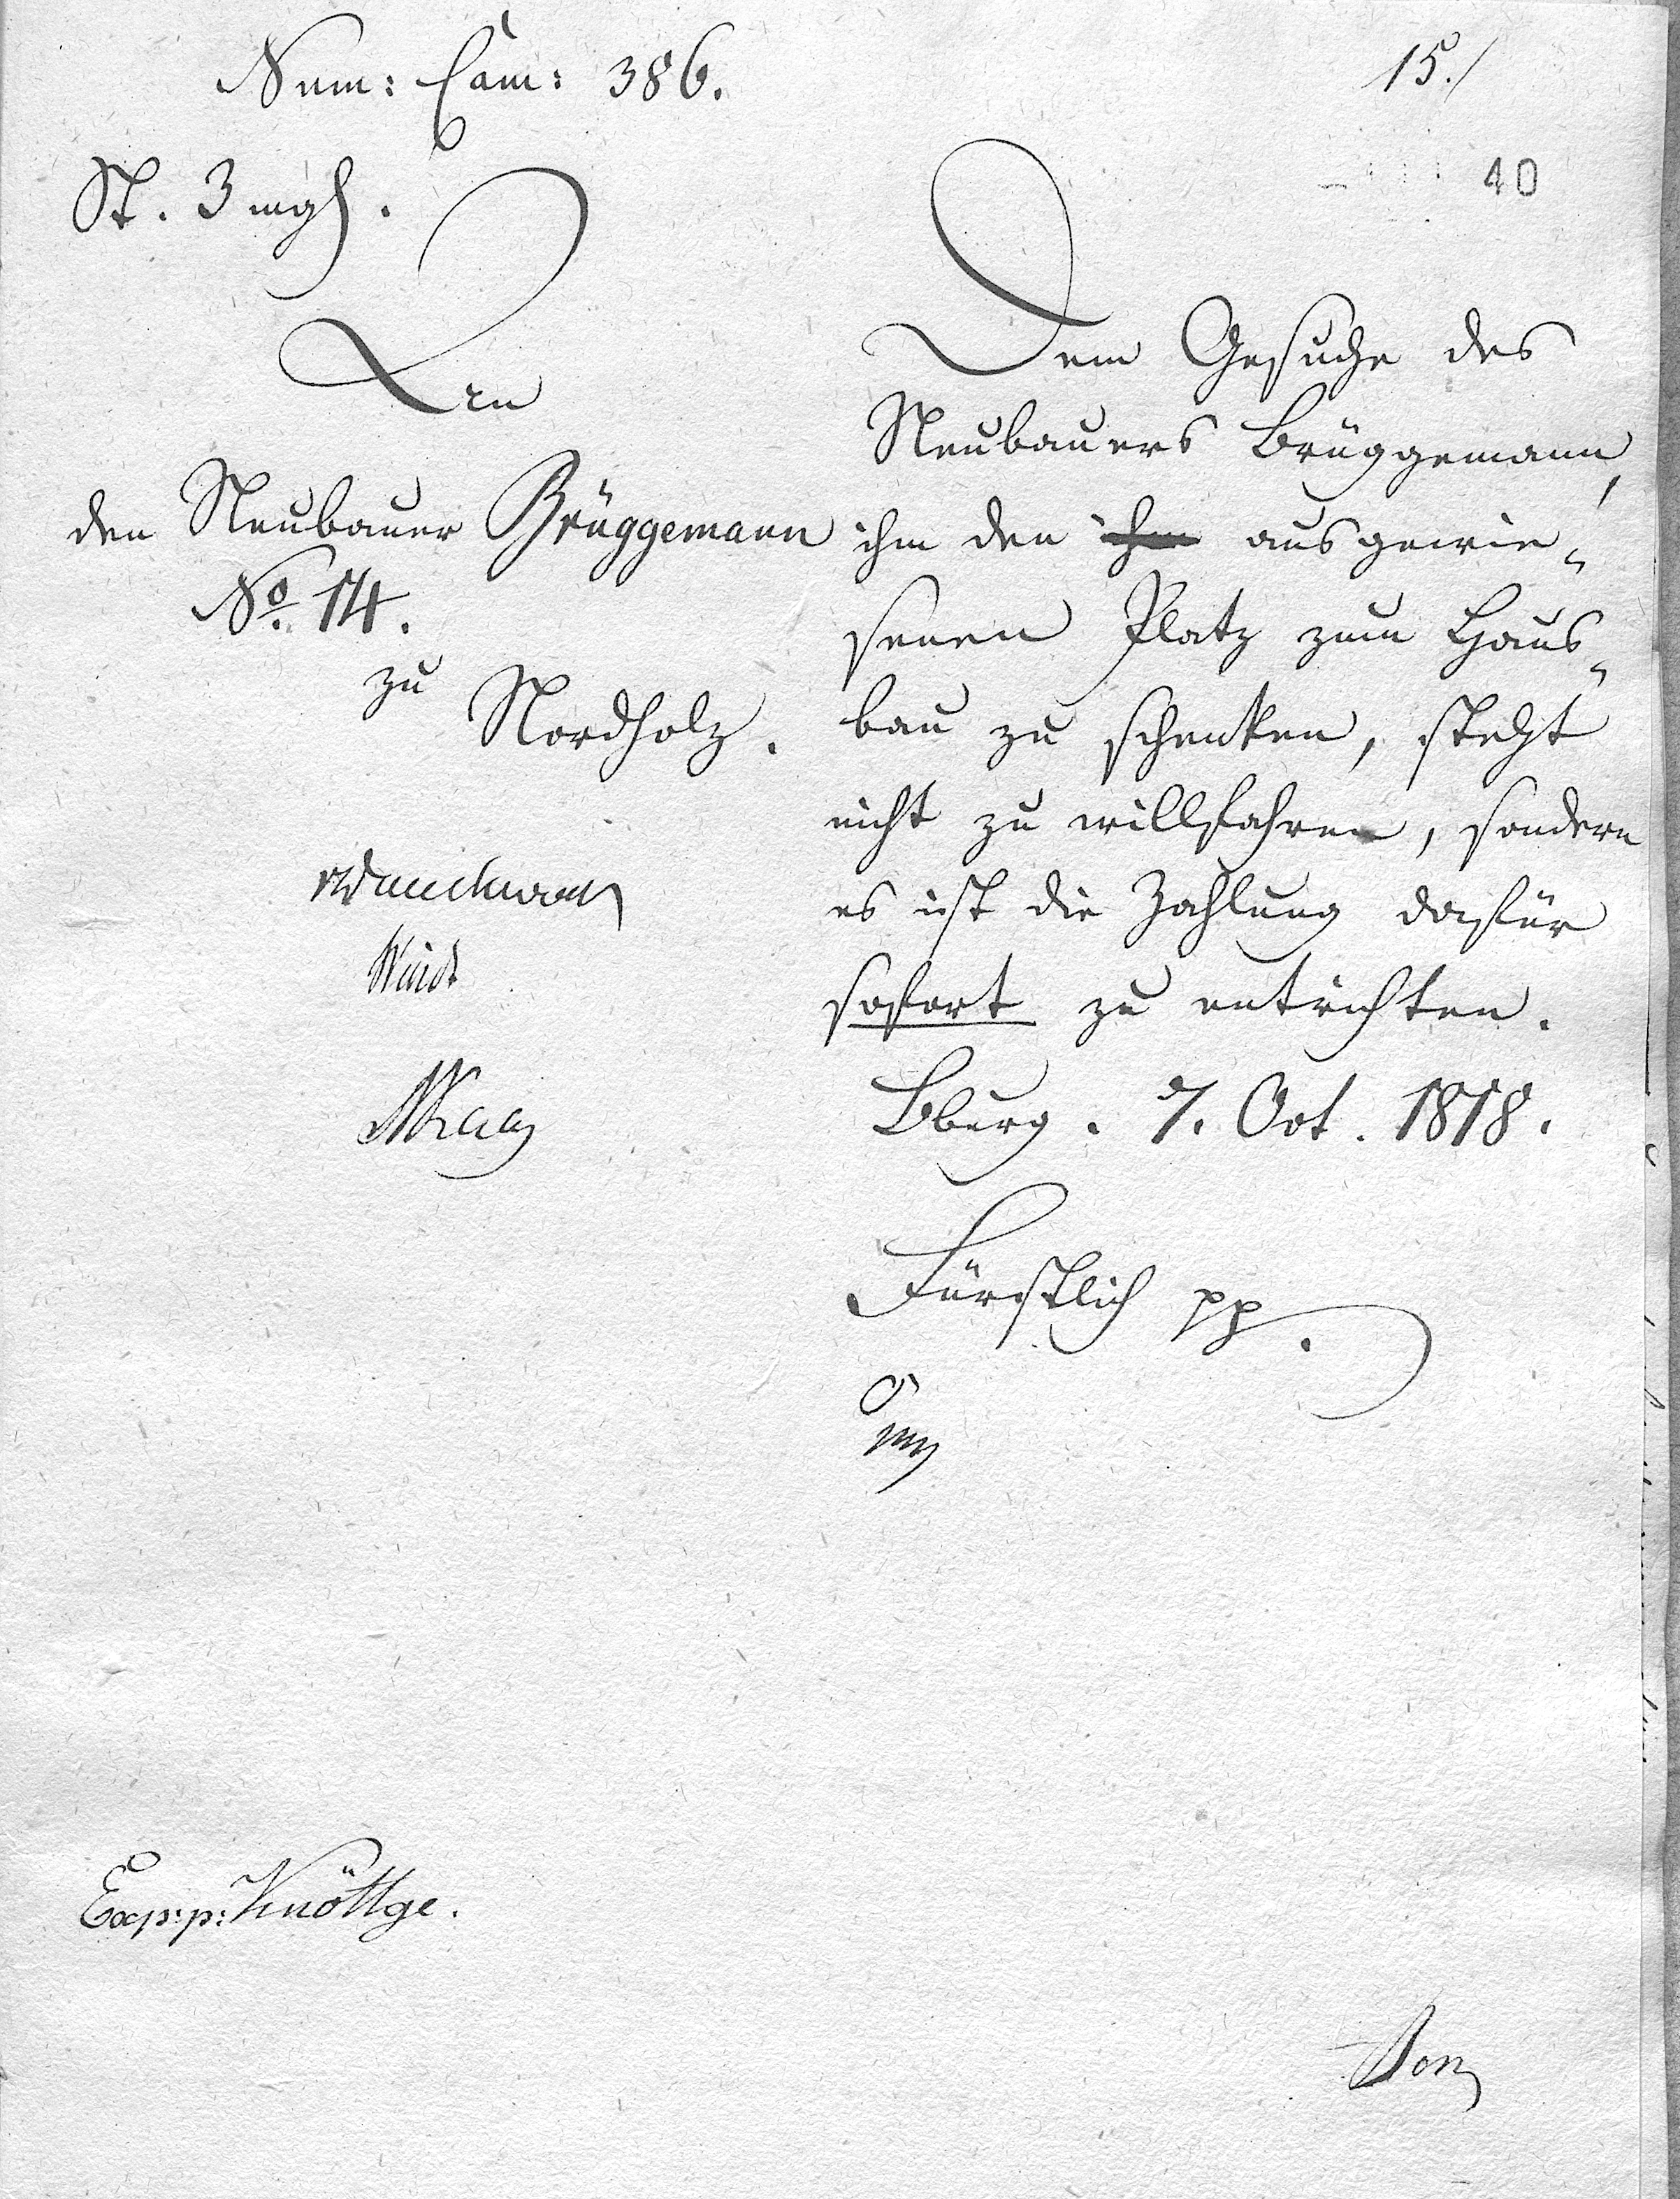 Num: Cam: 386.
15./
40
St. 3 mgl.
An
den Neubauer Brüggemann
No. 14.
zu
Nordholz.
Dem Gesuche des
Neubauers Brüggemann,
ihm den ihm ausgewie-
senen Platz zum Haus-
bau zu schenken, steht
nicht zu willfahren, sondern
es ist die Zahlung dafür
sofort zu entrichten.
Bburg. 7. Oct. 1818.
Fürstlich pp.
Exp: p: Knöttge.